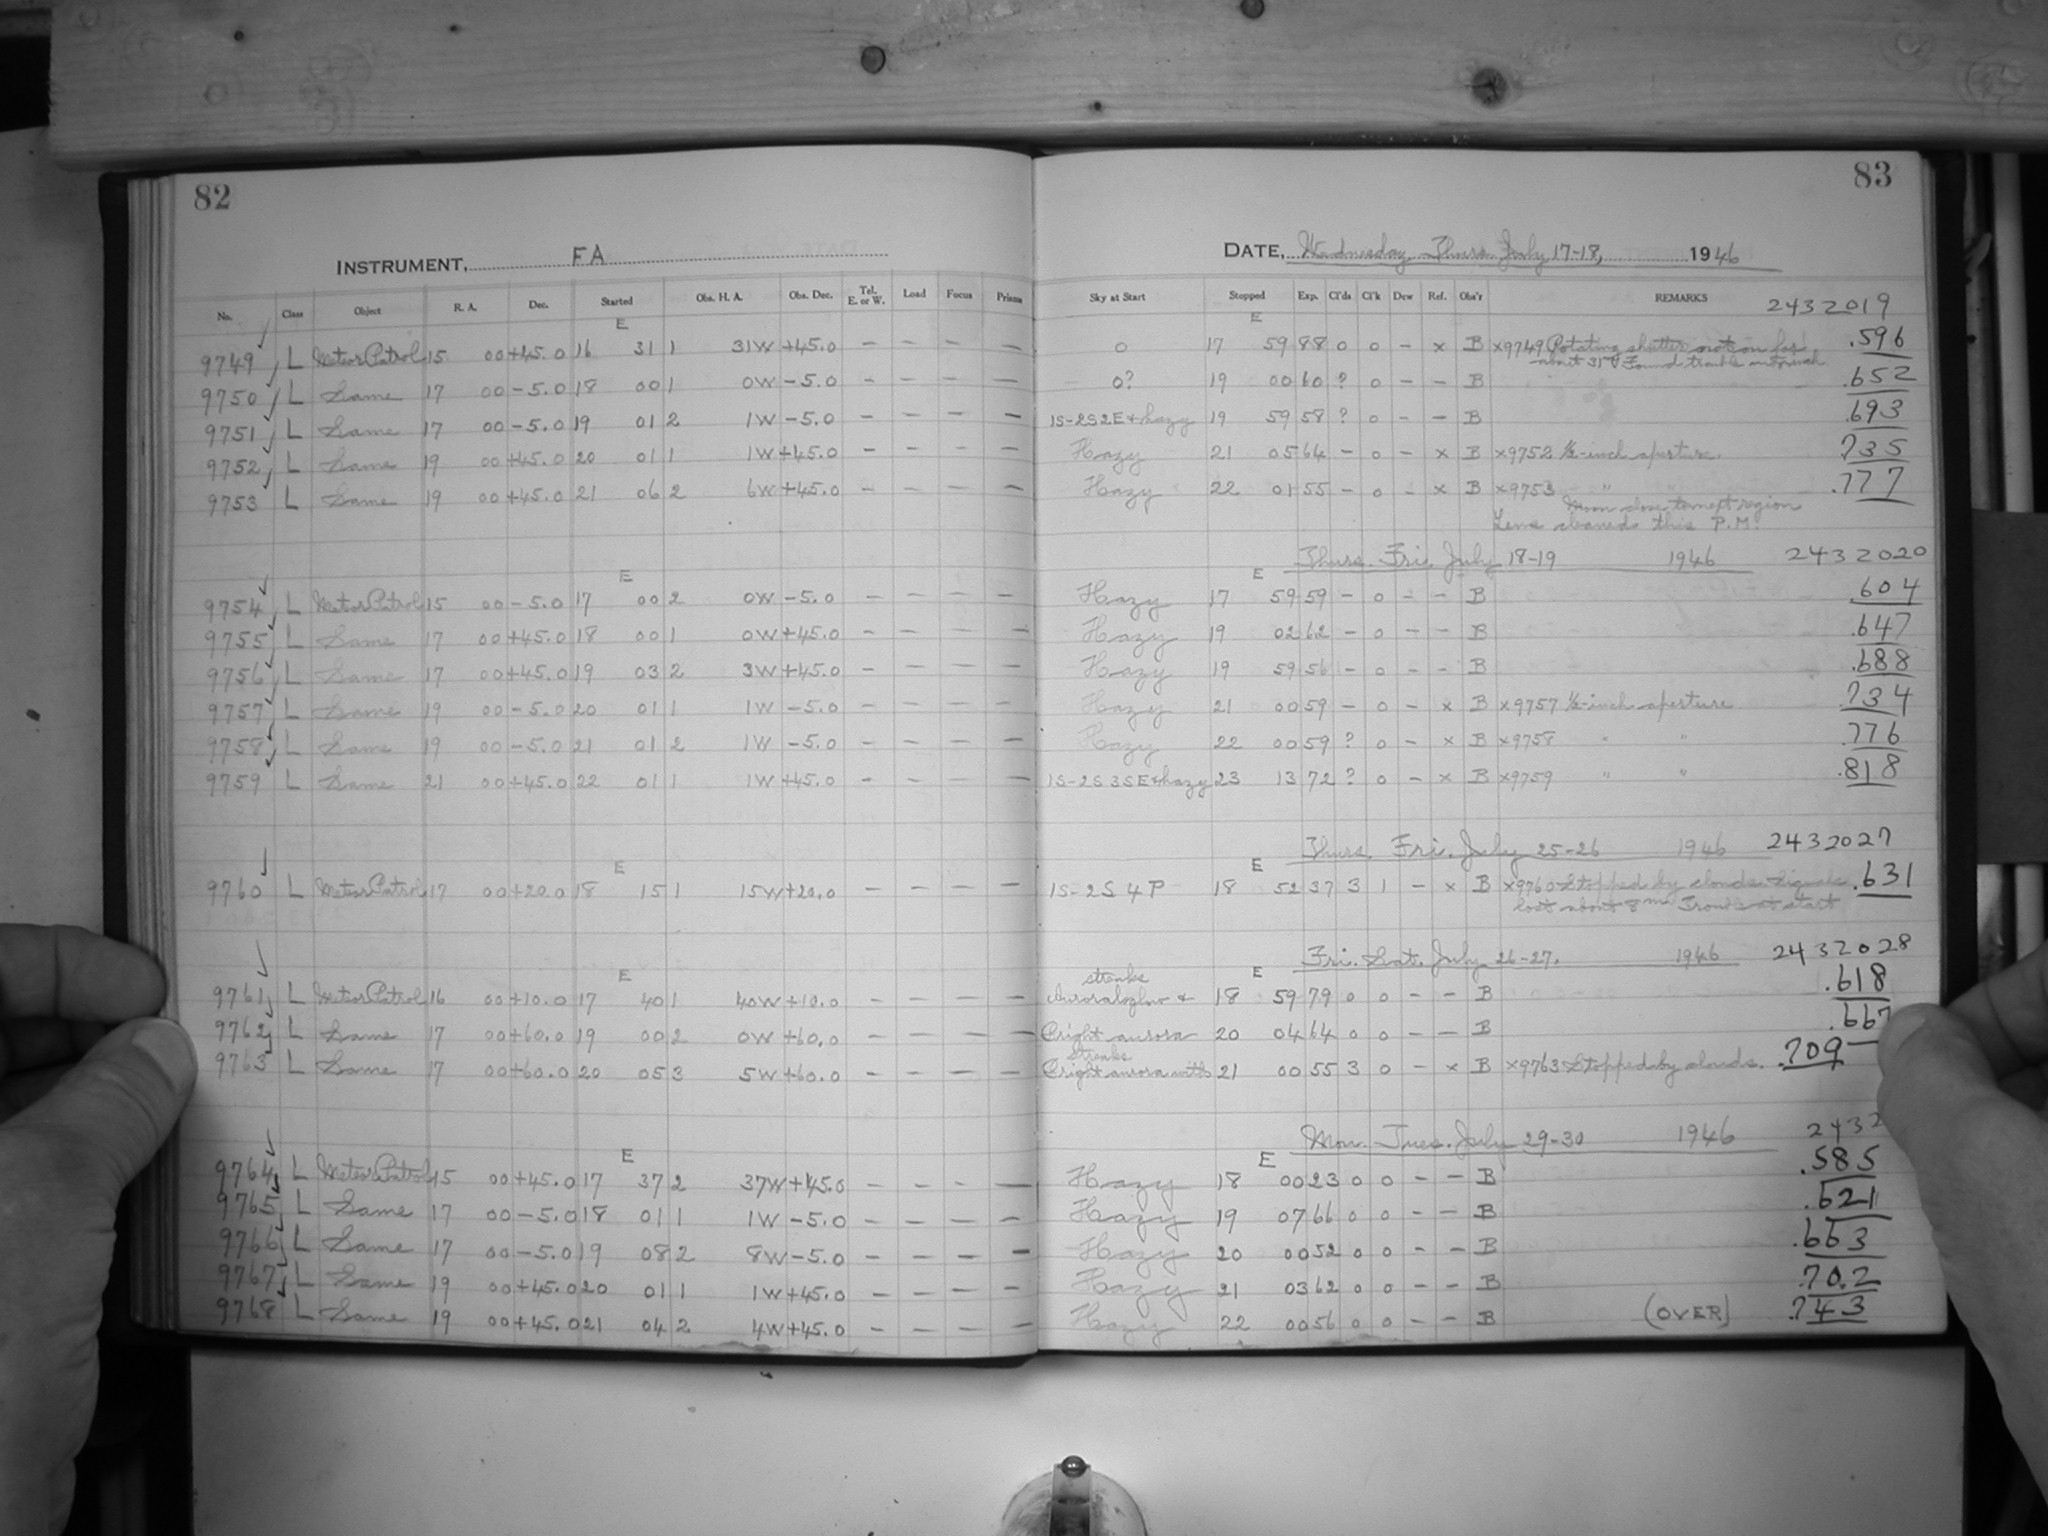 82
83
INSTRUMENT, FA
DATE, Wednesday Thurs. July 17-18, 1946
No. Class Object R. A. Dec. Started Obs. H. A. Obs. Dec. Tel. E. or W. Load Focus Prisms Sky at Start Stopped Exp. Cl'ds Cl'k Dew Ref. Obs'r REMARKS 2432019
E E
9749 L Meteor Patrol 15 00 +45.0 16 31 1 31W +45.0 – – – – 0 17 59 88 0 0 – x B x9749 Rotating shutter not on for .596
about 31m Found trouble
9750 L Same 17 00 -5.0 18 00 1 0W -5.0 – – – – 0? 19 00 60 ? 0 – – B .652
9751 L Same 17 00 -5.0 19 01 2 1W -5.0 – – – – 1S-2S2E+hazy 19 59 58 ? 0 – – B .693
9752 L Same 19 00 +45.0 20 01 1 1W +45.0 – – – – Hazy 21 05 64 – 0 – x B x9752 ½-inch aperture. .735
9753 L Same 19 00 +45.0 21 06 2 6W +45.0 – – – – Hazy 22 01 55 – 0 – x B x9753 " " .777
Moon close to next region
Lens cleaned this P.M.
Thurs. Fri. July 18-19 1946 2432020
E E
9754 L Meteor Patrol 15 00 -5.0 17 00 2 0W -5.0 – – – – Hazy 17 59 59 – 0 – – B .604
9755 L Same 17 00 +45.0 18 00 1 0W +45.0 – – – – Hazy 19 02 62 – 0 – – B .647
9756 L Same 17 00 +45.0 19 03 2 3W +45.0 – – – – Hazy 19 59 56 – 0 – – B .688
9757 L Same 19 00 -5.0 20 01 1 1W -5.0 – – – – Hazy 21 00 59 – 0 – x B x9757 ½-inch aperture .734
9758 L Same 19 00 -5.0 21 01 2 1W -5.0 – – – – Hazy 22 00 59 ? 0 – x B x9758 " " .776
9759 L Same 21 00 +45.0 22 01 1 1W +45.0 – – – – 1S-2S3SE+hazy 23 13 72 ? 0 – x B x9759 " " .818
Thurs. Fri. July 25-26 1946 2432027
E E
9760 L Meteor Patrol 17 00 +20.0 18 15 1 15W +20.0 – – – – 1S-2S 4P 18 52 37 3 1 – x B x9760 Stopped by clouds. Signals .631
lost about 8m Trouble at start
Fri. Sat. July 26-27. 1946 2432028
E streaks E
9761 L Meteor Patrol 16 00 +10.0 17 40 1 40W +10.0 – – – – Auroral glow + 18 59 79 0 0 – – B .618
9762 L Same 17 00 +60.0 19 00 2 0W +60.0 – – – – Bright aurora 20 04 64 0 0 – – B .667
streaks
9763 L Same 17 00 +60.0 20 05 3 5W +60.0 – – – – Bright aurora with 21 00 55 3 0 – x B x9763 Stopped by clouds. .709
Mon. Tues. July 29-30 1946 2432
E E
9764 L Meteor Patrol 15 00 +45.0 17 37 2 37W +45.0 – – – – Hazy 18 00 23 0 0 – – B .585
9765 L Same 17 00 -5.0 18 01 1 1W -5.0 – – – – Hazy 19 07 66 0 0 – – B .621
9766 L Same 17 00 -5.0 19 08 2 8W -5.0 – – – – Hazy 20 00 52 0 0 – – B .663
9767 L Same 19 00 +45.0 20 01 1 1W +45.0 – – – – Hazy 21 03 62 0 0 – – B .702
9768 L Same 19 00 +45.0 21 04 2 4W +45.0 – – – – Hazy 22 00 56 0 0 – – B (OVER) .743